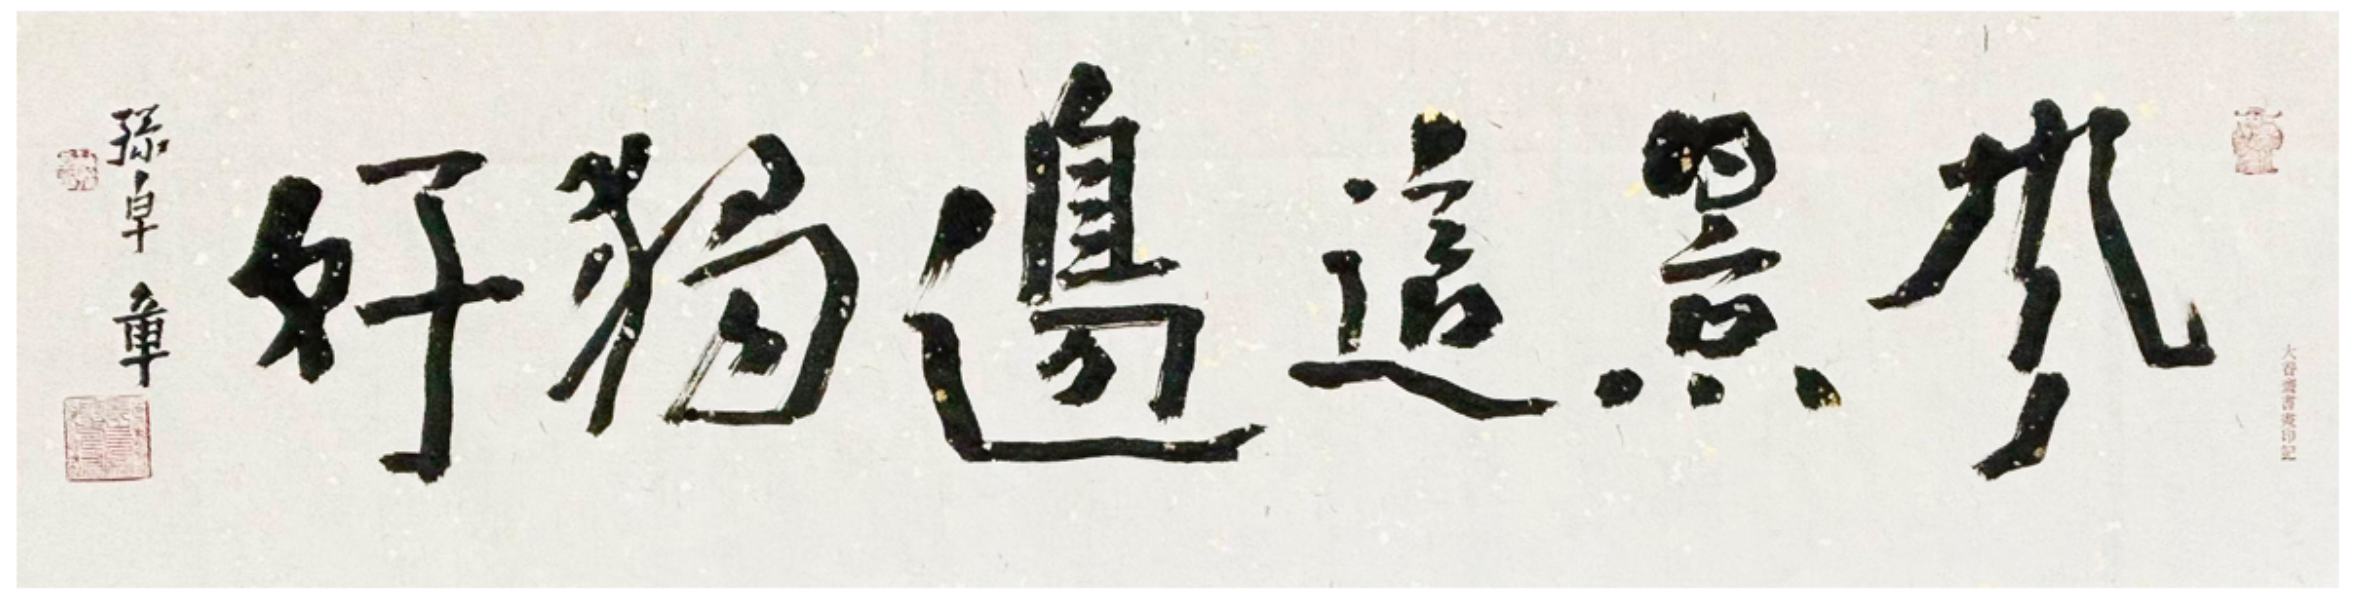 風景這邊獨好
孫卓章
大吞齋書畫印記